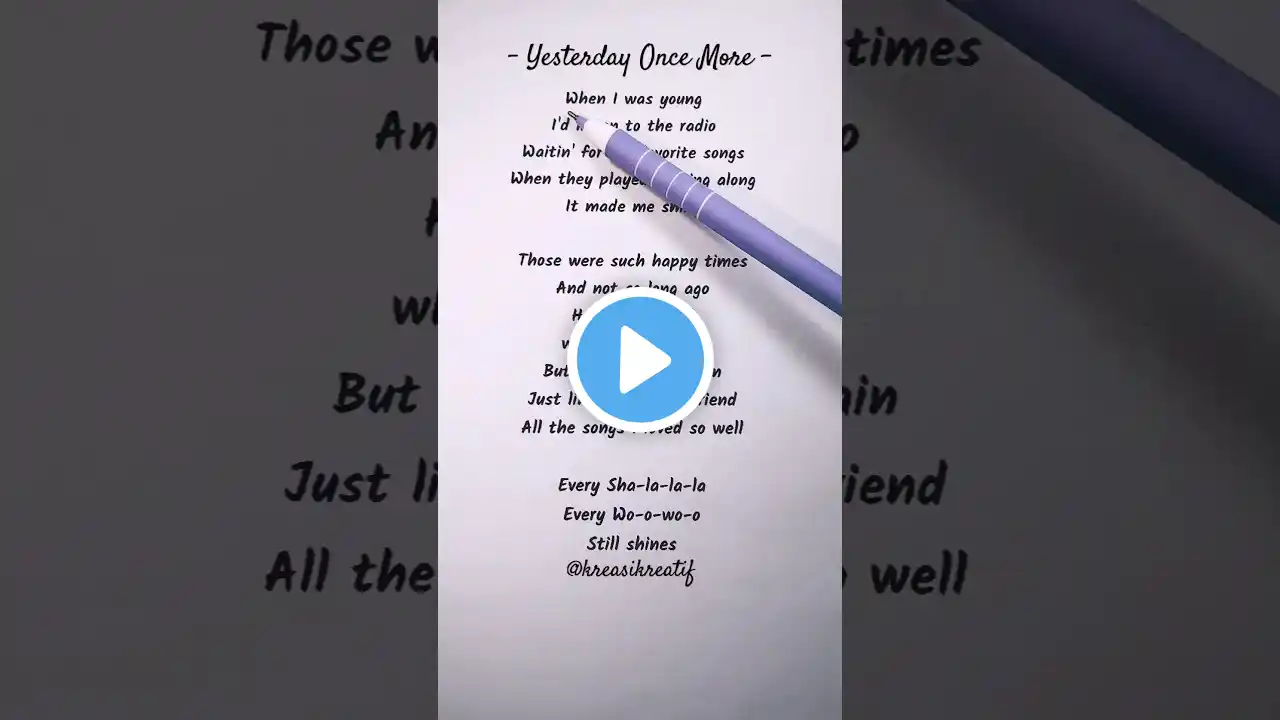 - Yesterday Once More -
When I was young
I'd to the radio
Waitin' for songs
When they along
It made me
Those were such happy times
And not long ago
But
Just
All the songs loved so well
Every Sha-la-la-la
Every Wo-o-wo-o
Still shines
@kreasikreatif